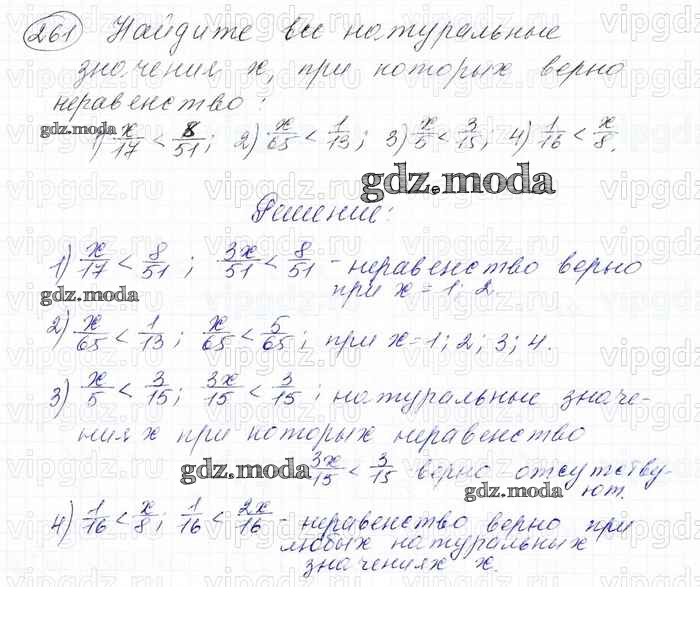 261 Найдите все натуральные
значения x, при которых верно
неравенство:
gdz.moda
1) x/17 < 8/51; 2) x/65 < 1/13; 3) x/5 < 3/15; 4) 1/16 < x/8.
gdz.moda
Решение:
1) x/17 < 8/51; 3x/51 < 8/51 - неравенство верно
gdz.moda
при x = 1; 2.
2) x/65 < 1/13; x/65 < 5/65; при x=1; 2; 3; 4.
3) x/5 < 3/15; 3x/15 < 3/15; натуральные значе-
ния x при которых неравенство
gdz.moda
3x/15 < 3/15 верно отсутству-
gdz.moda
ют.
4) 1/16 < x/8; 1/16 < 2x/16 - неравенство верно при
любых натуральных
значениях x.